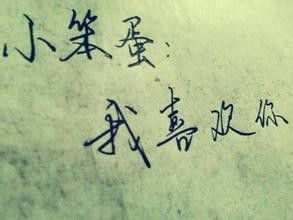 小笨蛋:
我喜欢你